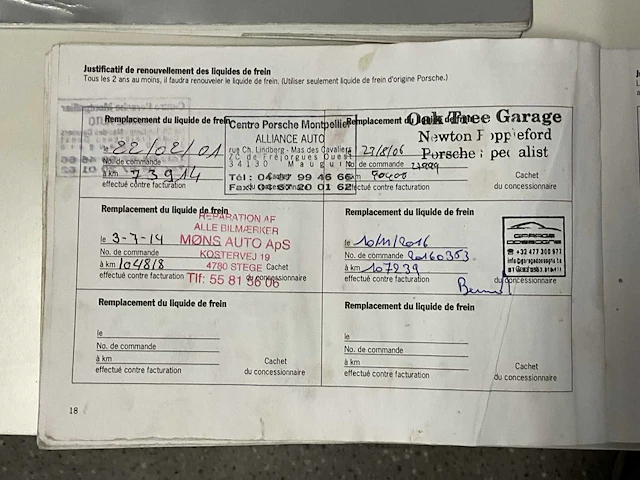 Justificatif de renouvellement des liquides de frein
Tous les 2 ans au moins, il faudra renouveler le liquide de frein. (Utiliser seulement liquide de frein d'origine Porsche.)
Remplacement du liquide de frein
le 22/02/01
No. de commande
à km 73914
effectué contre facturation
Centre Porsche Montpellier
ALLIANCE AUTO
rue Ch. Lindberg - Mas des Cavaliers
ZC de Fréjorgues Ouest
34130 Mauguio
Tél: 04 67 99 46 66
Fax: 04 67 20 01 62
Remplacement du liquide de frein
le 23/8/06
No. de commande
à km 90400
effectué contre facturation
Cachet
du concessionnaire
Oak Tree Garage
Newton Poppleford
Porsche specialist
Remplacement du liquide de frein
le 3-7-14
No. de commande
à km 104818
effectué contre facturation
Cachet
du concessionnaire
REPARATION AF
ALLE BILMÆRKER
MØNS AUTO ApS
KOSTERVEJ 19
4780 STEGE
Tlf: 55 81 56 06
Remplacement du liquide de frein
le 10/11/2016
No. de commande 20160353
à km 107239
effectué contre facturation
du concessionnaire
GARAGE
☎ +32 477 300 971
Remplacement du liquide de frein
le
No. de commande
à km
effectué contre facturation
Cachet
du concessionnaire
Remplacement du liquide de frein
le
No. de commande
à km
effectué contre facturation
Cachet
du concessionnaire
18